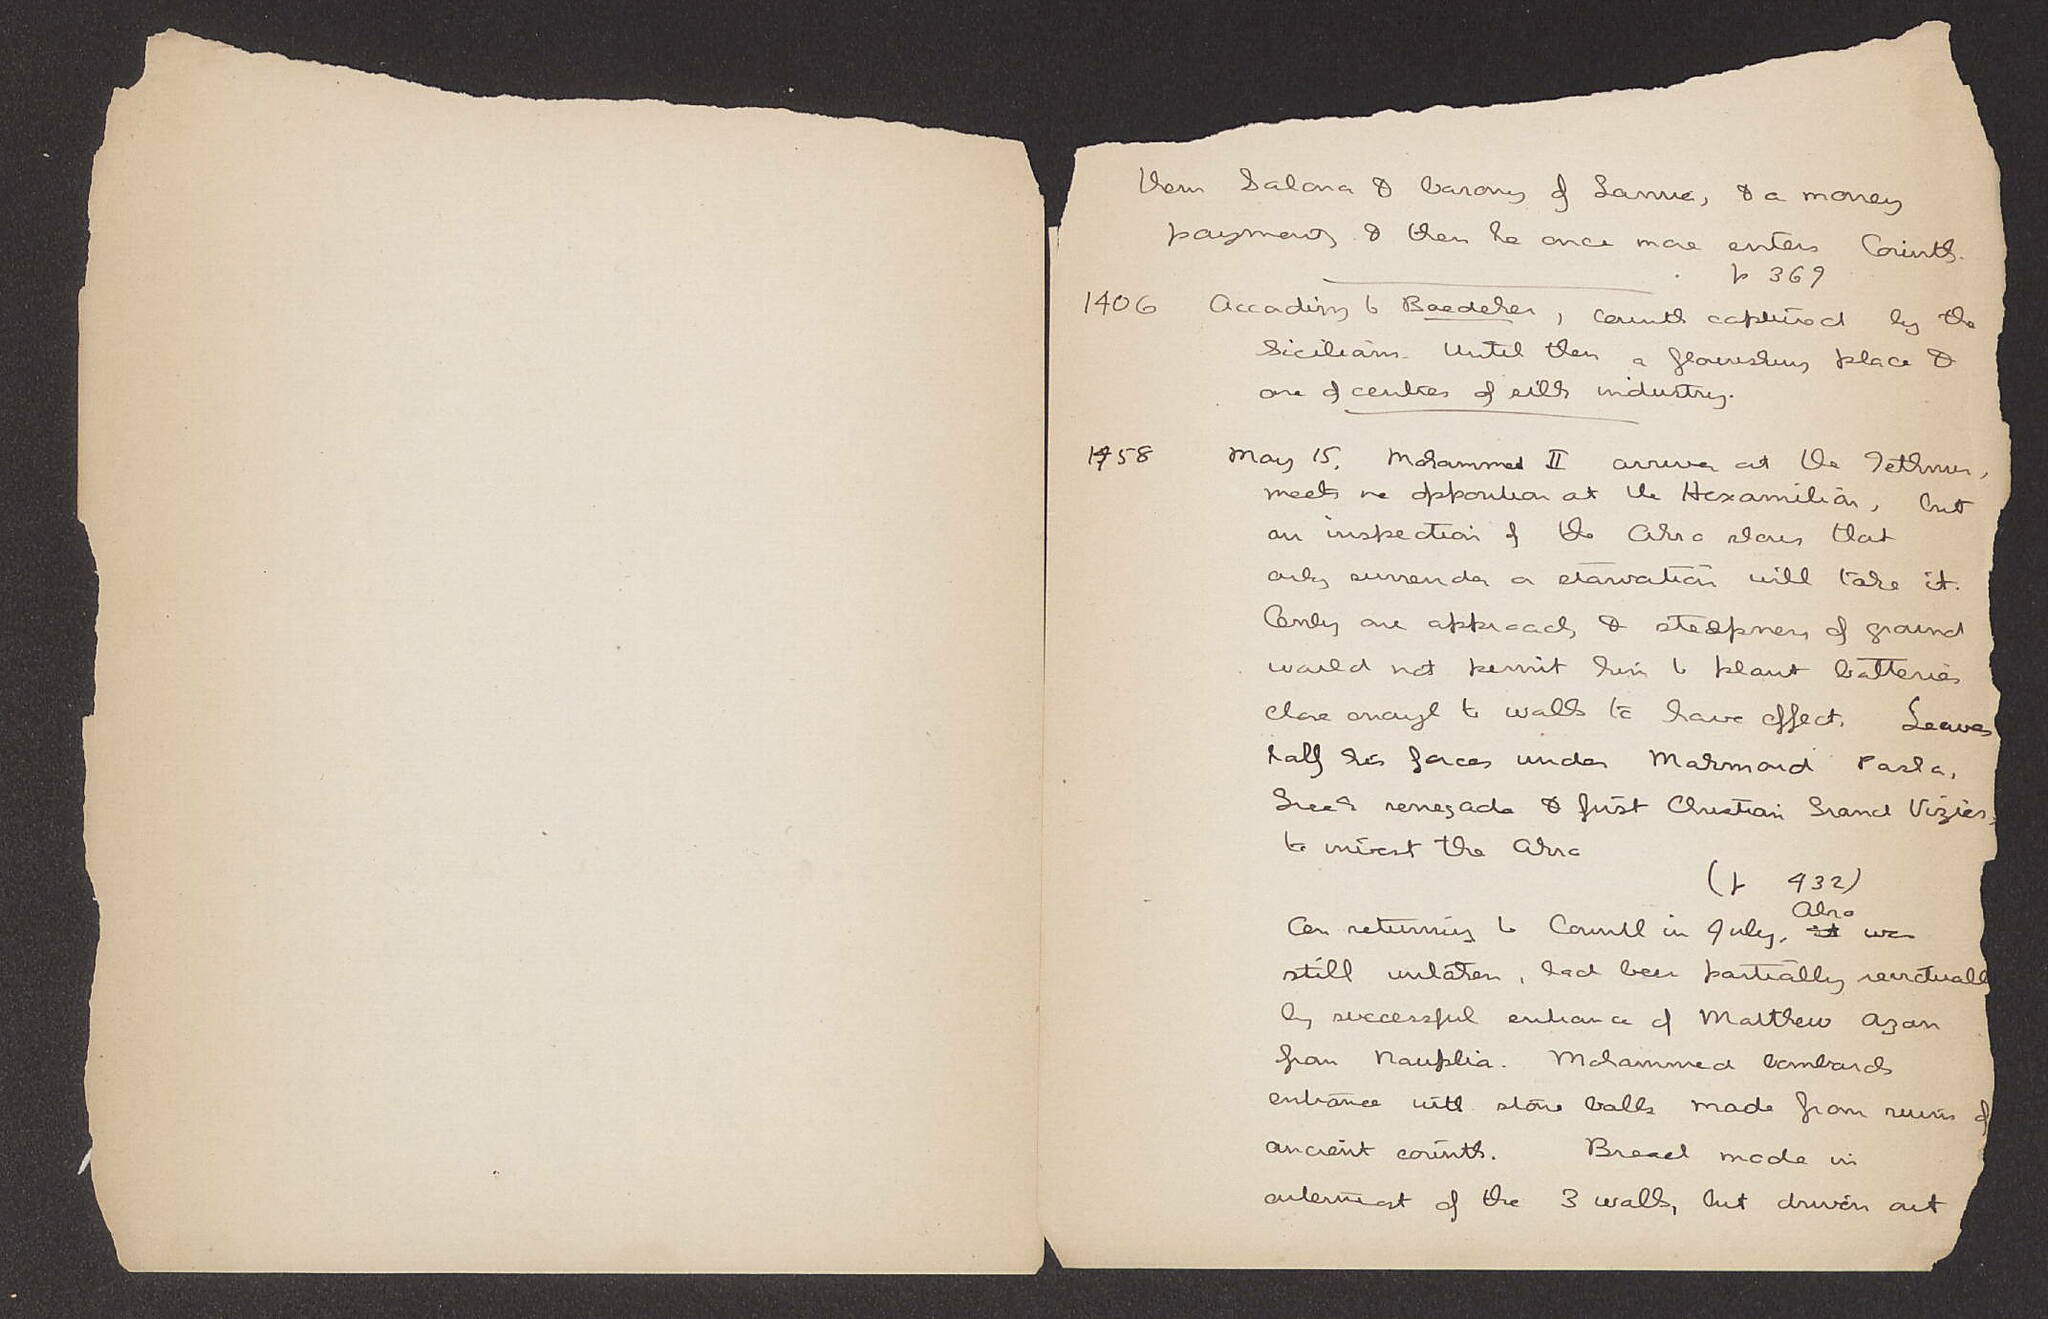 them Salona & barony of Lamia, & a money
payment, & then he once more enters Corinth.
p 369
1406 According to Baedeker, Corinth captured by the
Sicilians. Until then a flourishing place &
one of centres of silk industry.
1458 May 15. Mohammed II arrives at the Isthmus,
meets no opposition at the Hexamilion, but
an inspection of the Akro shows that
only surrender or starvation will take it.
Only one approach, & steepness of ground
would not permit him to plant batteries
close enough to walls to have effect. Leaves
half his forces under Mahmoud Pasha,
Greek renegade & first Christian Grand Vizier,
to invest the Akro
(p 432)
On returning to Corinth in July, it Akro was
still untaken, had been partially revictuall
by successful entrance of Matthew Asan
from Nauplia. Mohammed bombards
entrance with stone balls made from ruins of
ancient Corinth. Breach made in
outermost of the 3 walls, but driven out